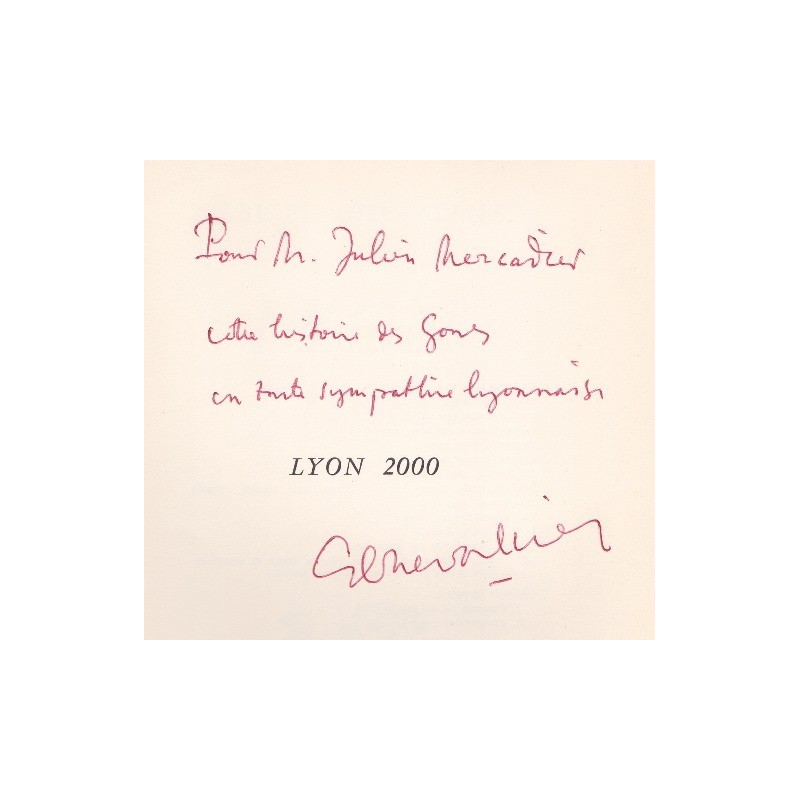 Pour M. Julien Mercadier
cette histoire des Gones
en toute sympathie lyonnaise
LYON 2000
GChevallier